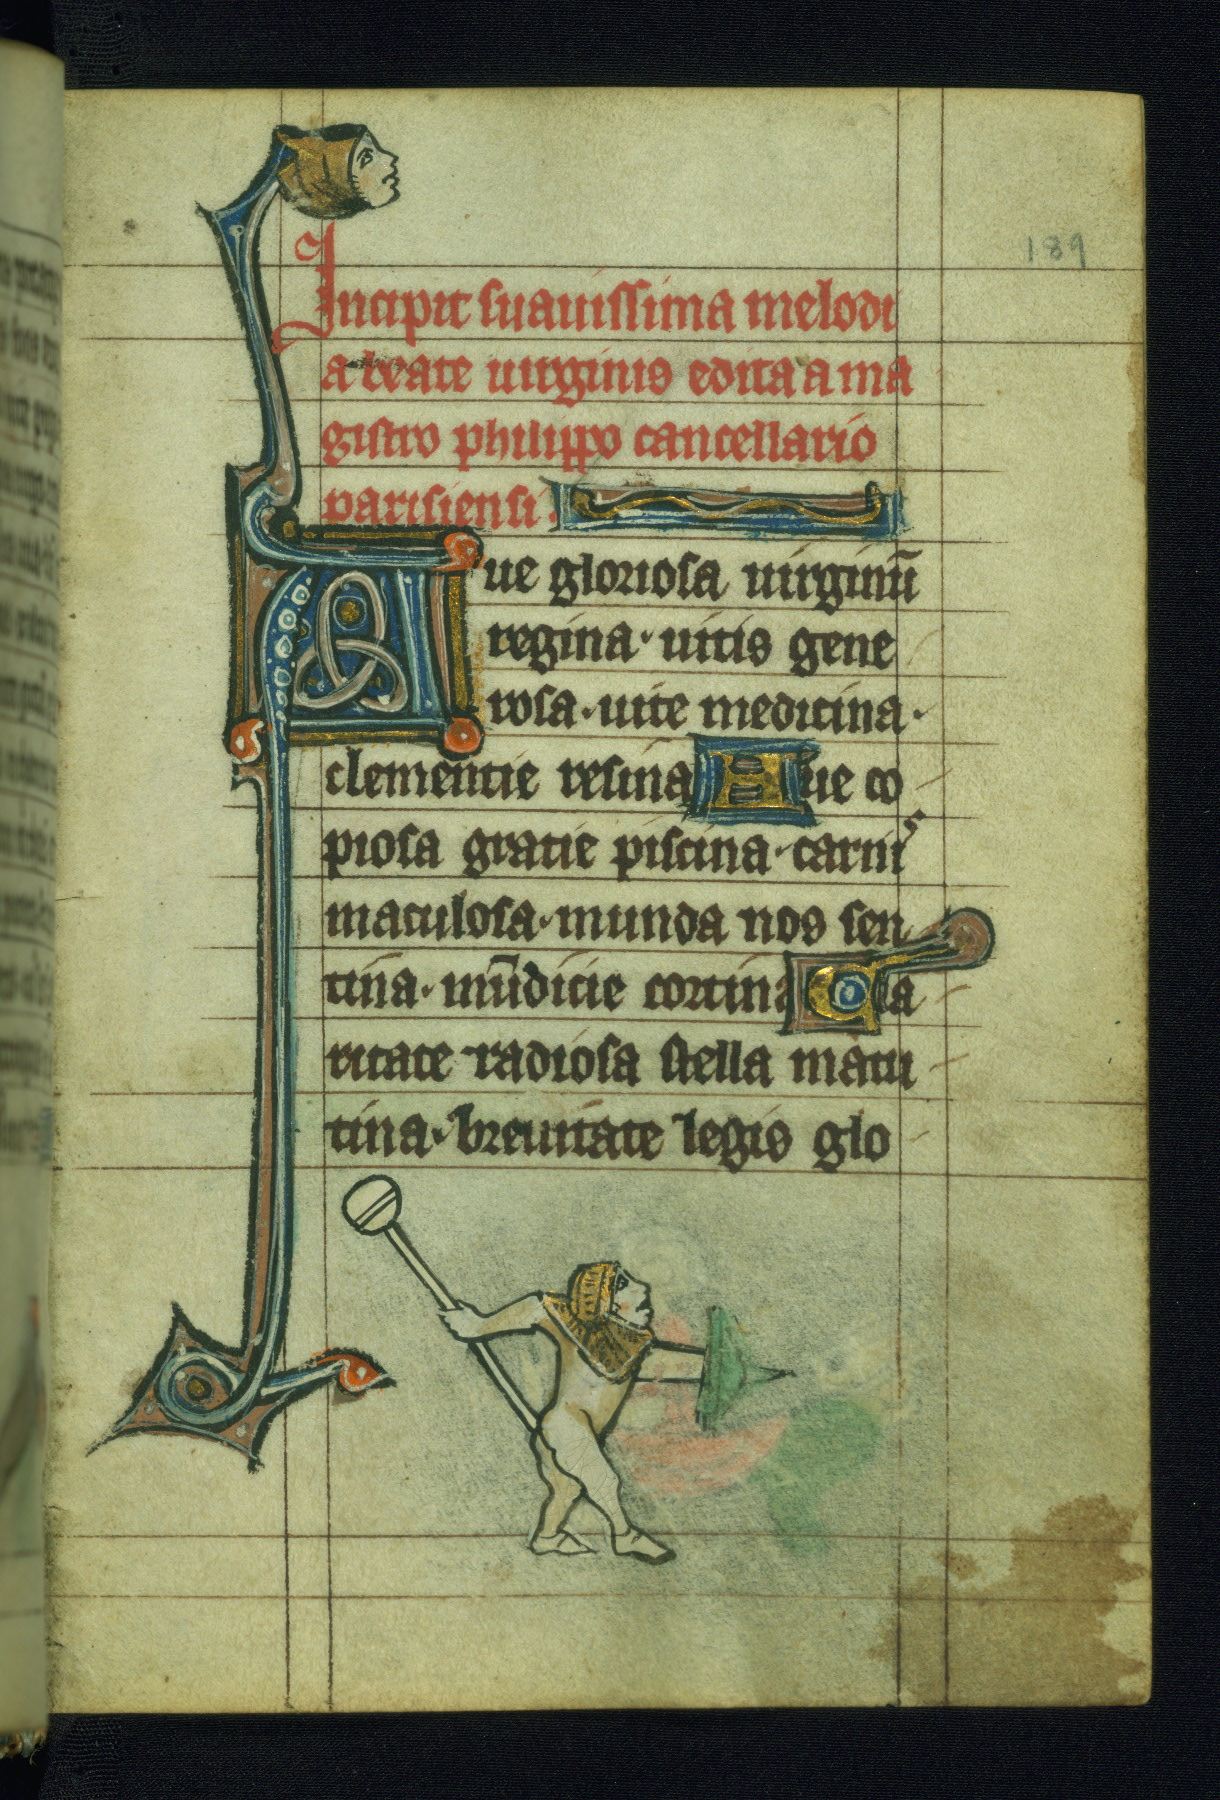 189
Incipit suauissima melodi
a beate uirginis edita a ma
gistro philippo cancellario
parisiensi.
Aue gloriosa uirginū
regina· uitis gene
rosa· uite medicina·
clementie resina Aue co
piosa gratie piscina· carnis
maculosa· munda nos sen
tina· mūdicie cortina Cla
ritate radiosa stella matu
tina· breuitate legis glo